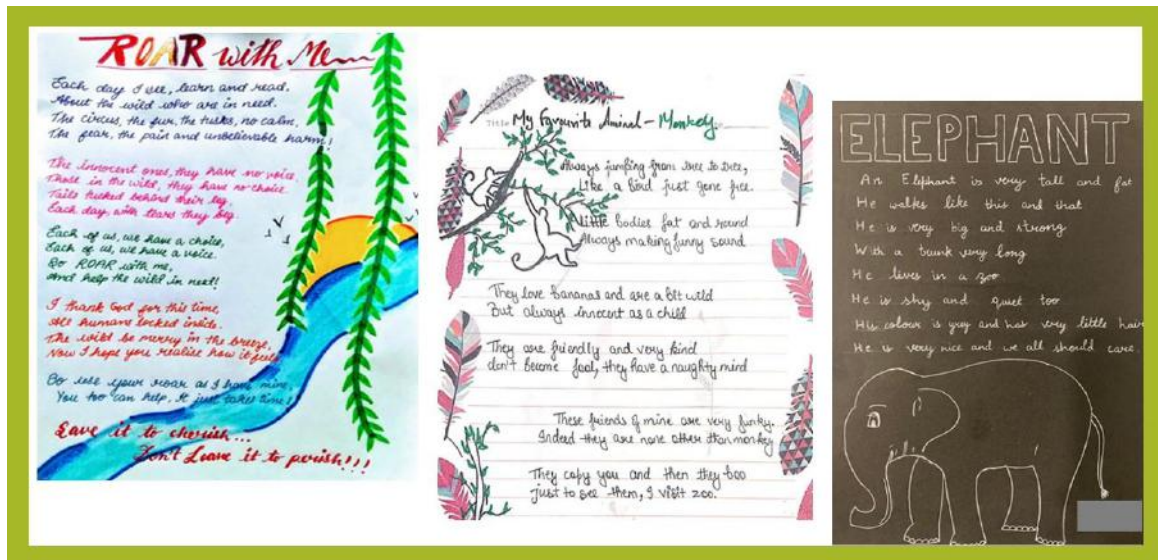 ROAR with Me
Each day I see, learn and read,
About the wild who are in need.
The circus, the fur, the tusks, no calm,
The fear, the pain and unbelievable harm!
The innocent ones, they have no voice.
Those in the wild, they have no choice.
Tails tucked behind their leg,
Each day, with tears they beg.
Each of us, we have a choice,
Each of us, we have a voice.
So ROAR with me,
And help the wild in need!
I thank God for this time,
All humans locked inside.
The wild be merry in the breeze,
Now I hope you realise how it feels
So use your roar as I have mine,
You too can help, it just takes time!
Save it to cherish...
Don't Leave it to perish!!!
Title: My Favourite Animal - Monkey
Always jumping from tree to tree,
Like a bird just gone free.
Little bodies fat and round
Always making funny sound
They love bananas and are a bit wild
But always innocent as a child
They are friendly and very kind
don't become fool, they have a naughty mind
These friends of mine are very funky.
Indeed they are none other than monkey
They copy you and then they boo
just to see them, I visit zoo.
ELEPHANT
An Elephant is very tall and fat
He walks like this and that
He is very big and strong
With a trunk very long
He lives in a zoo
He is shy and quiet too
His colour is grey and has very little hair
He is very nice and we all should care.